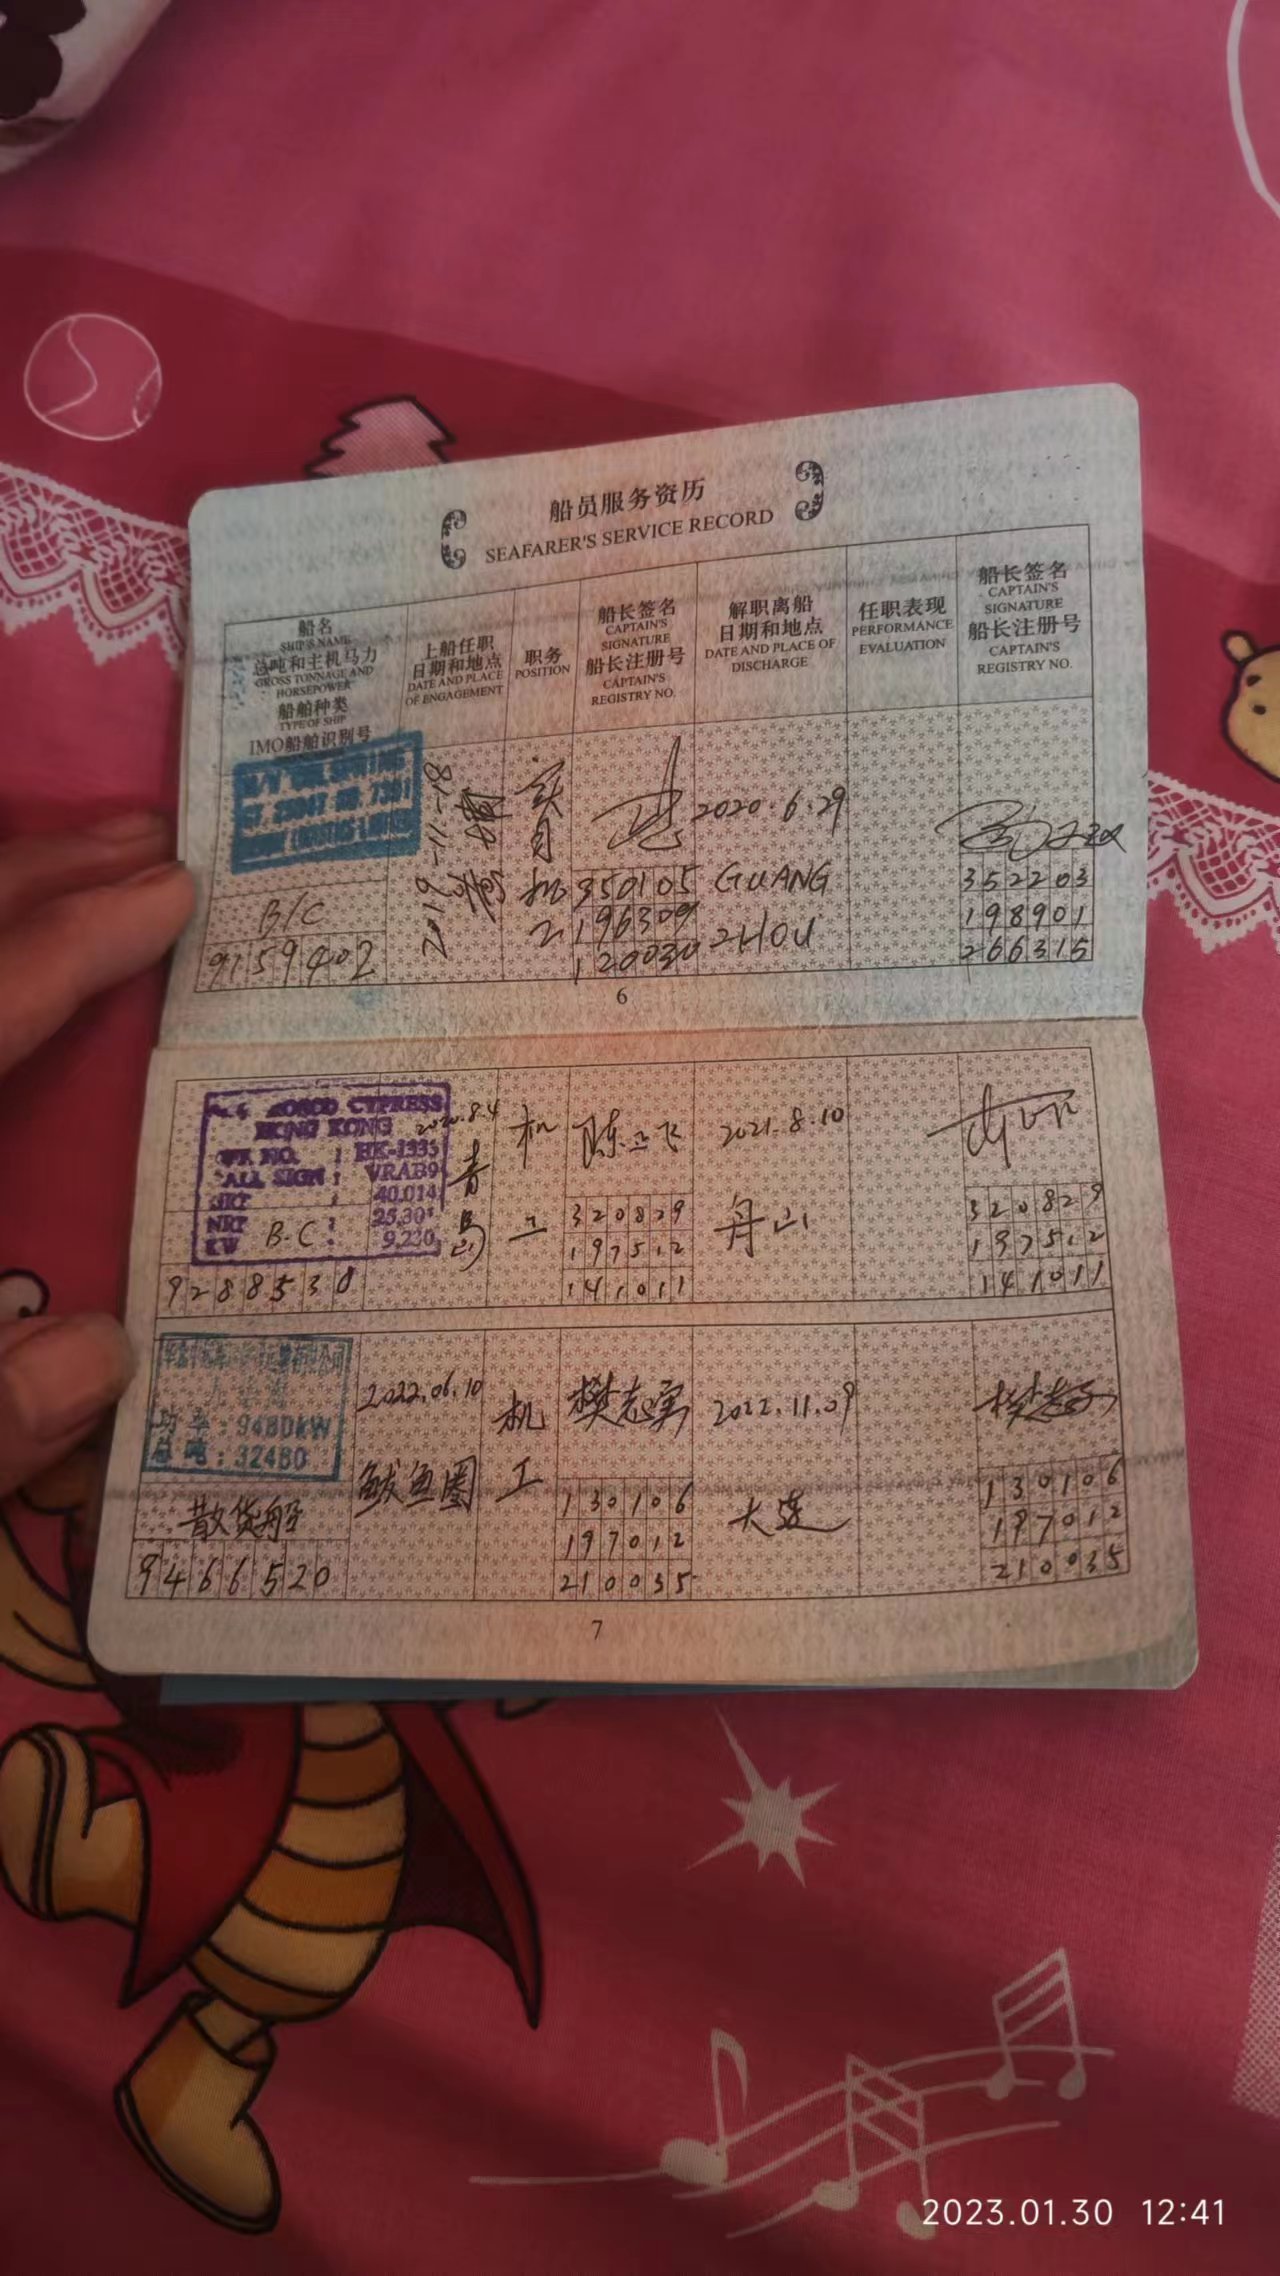 船员服务资历
SEAFARER'S SERVICE RECORD
船名
SHIP'S NAME
总吨和主机马力
GROSS TONNAGE AND
HORSEPOWER
船舶种类
TYPE OF SHIP
IMO船舶识别号
上船任职
日期和地点
DATE AND PLACE
OF ENGAGEMENT
职务
POSITION
船长签名
CAPTAIN'S
SIGNATURE
船长注册号
CAPTAIN'S
REGISTRY NO.
解职离船
日期和地点
DATE AND PLACE OF
DISCHARGE
任职表现
PERFORMANCE
EVALUATION
船长签名
CAPTAIN'S
SIGNATURE
船长注册号
CAPTAIN'S
REGISTRY NO.
B/C
9159402
2019-11-18
350105
196309
120030
2020.6.29
GUANG
ZHOU
352203
198901
266315
6
COSCO CYPRESS
HONG KONG
HK-1335
CALL SIGN : VRAB9
GRT 40.014
NRT : 25,301
KW : 9,230
B.C
9288530
2020.8.4
青
岛
机
工
陈正飞
320829
197512
141011
2021.8.10
舟山
320829
197512
141011
功率:9480KW
总吨:32480
散货船
9466520
2022.06.10
鲅鱼圈
机
工
樊志军
130106
197012
210035
2022.11.09
大连
130106
197012
210035
7
2023.01.30 12:41